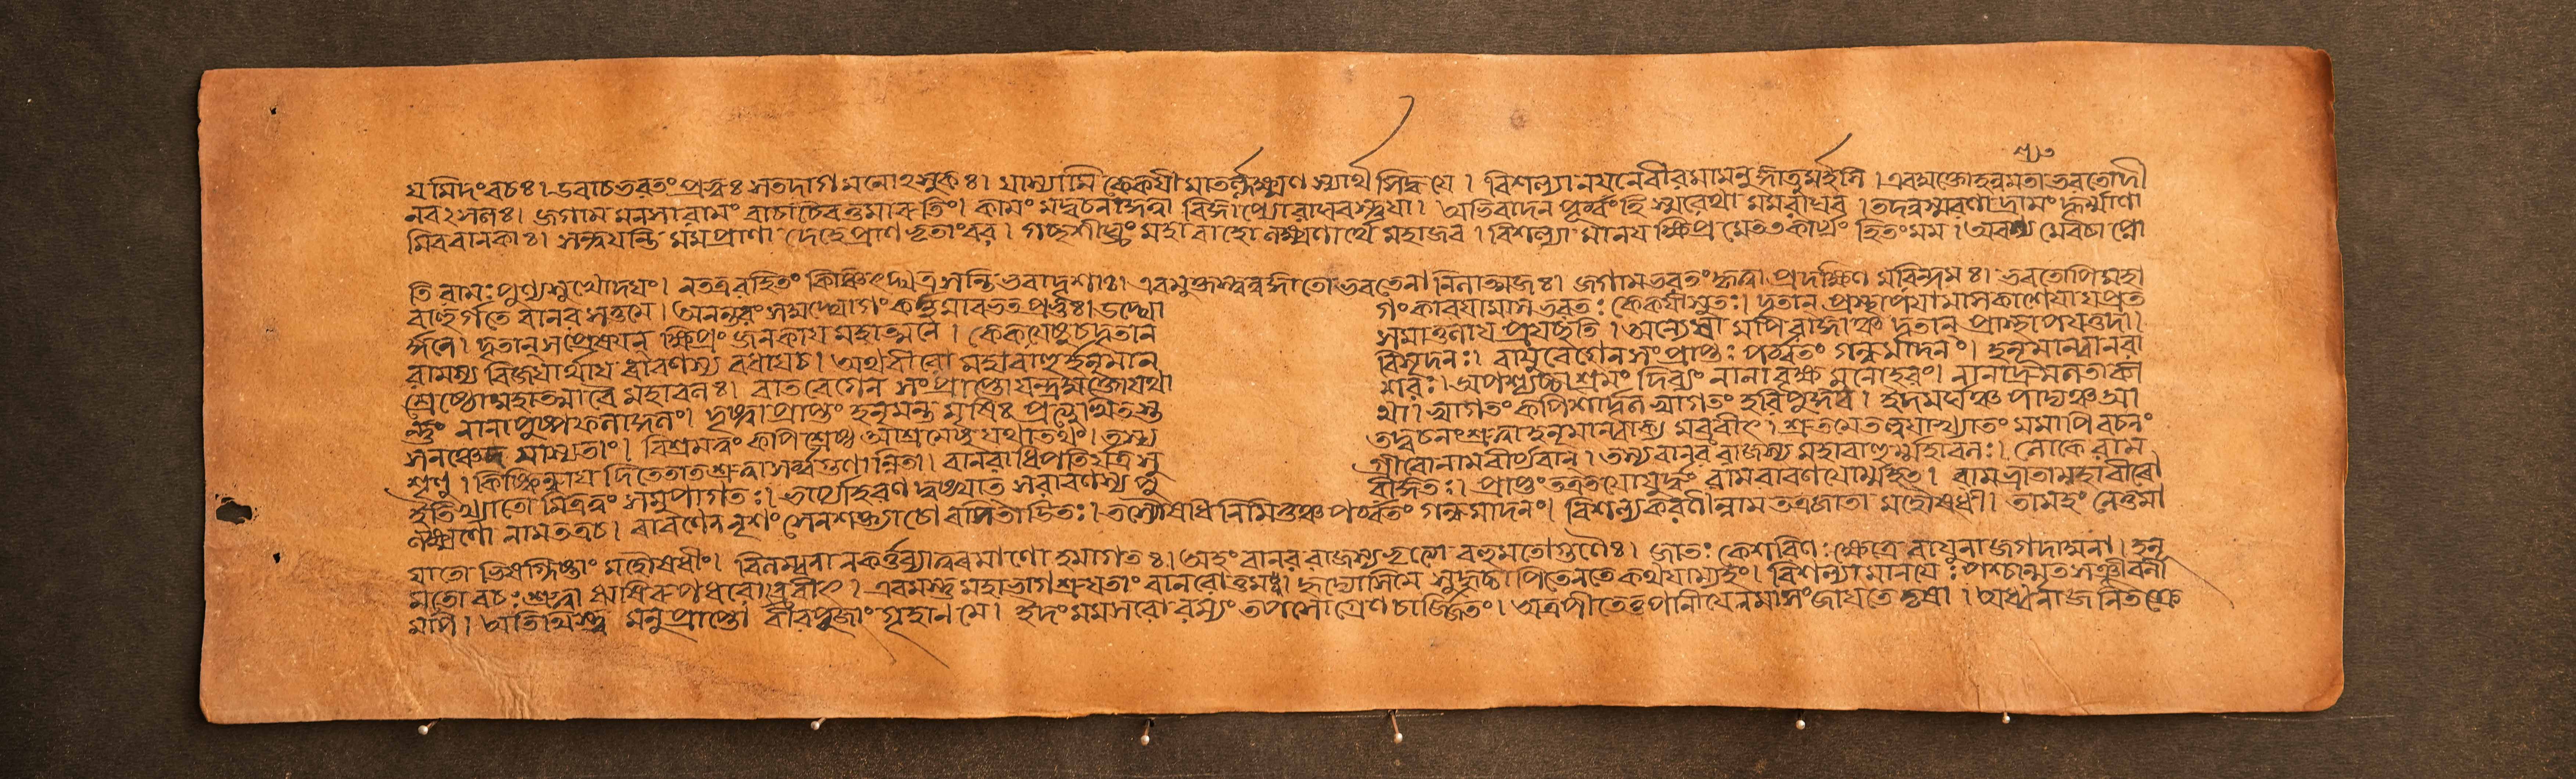 স্যুত
য মিদং বচঃ। উবাচ ভরতঃ প্রহৃঃ সতদাগমনোৎসুকঃ। যাস্যামি কৈকয়ী মাতর্ল্লক্ষ্মণ স্যার্থ সিদ্ধ যে । বিশল্যা নয়নে বীর মামনু জ্ঞাতুমর্হসি । এবমুক্তো হনুমতা ভরতো দী
জগাম মনসা রামং বাচা চৈবত্তুমা কৃতিং। কামং মদ্বচনাদ্গত্বা বিজ্ঞাপ্যো রাঘবস্ত্বয়া। অভিবাদন পূর্ব্বংহি স্মরেথা মম রাঘব । তদনুস্মরণা দ্রামং
মম প্রাণা দেহে প্রাণ ভৃতাংবর । গচ্ছ শীঘ্রং মহা বাহো লক্ষ্মণার্থে মহাজব । বিশল্যা মানয় ক্ষিপ্র মেতৎ কার্য্যং হিতং মম । অবশ্য মেবচা প্নো
তি রামঃ পুণ্য সুখোদয়ং। নতত্র রহিতং কিঞ্চিৎ যত্র সন্তি ভবাদৃশাঃ। এবমুক্তস্ত্বনুজ্ঞাতো ভরতেনা নিলাত্মজঃ। জগাম ভরতং কৃত্বা প্রদক্ষিণ মরিন্দমঃ। ভরতোপি মহা
বাহুর্গতে বানর সত্তমে। অনন্তরং সমুদ্যোগং কর্ত্তু মারভত প্রভুঃ। উদ্যো গং কারয়ামাস ভরতঃ কৈকয়ীসুতঃ। দূতান্ প্রস্থাপয়ামাস কাশেয়া য়প্রত
র্দ্দনে। দূতান্ সপ্রেষয়ন্ ক্ষিপ্রং জনকায় মহাত্মনে । কৈকয়েষু চ দূতান সমাত্তনায় প্রযচ্ছতি । অন্যেষা মপি রাজ্ঞাঞ্চ দূতান্ প্রাস্থাপয়ত্তদা।
রামস্য বিজয়ার্থায় রাবণস্য বধায়চ। অথ বীরো মহাবাহু র্হনূমান্ বিসূদনঃ। বায়ুবেগেন সং প্রাপ্তঃ পর্ব্বতং গন্ধমাদনং। হনূমান্বানরা
শ্রেষ্ঠো মহাত্মাবৈ মহাবলঃ। বাতবেগেন সংপ্রাপ্তো যন্দ্রমুক্তো যথা শরঃ। অপশ্যচ্চা শ্রমং দিব্যং নানা বৃক্ষ মনোহরং। নানাদ্রুমলতাকী
র্ন্নং নানাপুষ্পফলাদ্গলং। দৃষ্ট্বা প্রাপ্তং হনূমন্ত মৃষিঃ প্রত্যুত্থিতস্ত থা। স্বাগতং কপিশার্দ্দূল স্বাগতং হরি পুঙ্গব। ইদমর্ঘঞ্চ পাদ্যঞ্চ আ
সনঞ্চেদ মাস্যতাং। বিশ্রমত্বং কপিশ্রেষ্ঠ আশ্রমেষু যথাতথং। তস্য তদ্বচনং শ্রুত্বা হনূমান্বাক্য মব্রবীৎ। শ্রুতমেতত্ত্বয়াখ্যাতং মমাপি বচনং
শৃণু । দিতে তাত শ্রুত্বা সর্ব্বগুণান্বিতা। বানরাধিপতির্যত্র সু গ্রীবোনাম বীর্য্যবান্। তস্য বানর রাজস্য মহাবাহুর্ম্মহাবলঃ। লোকে রাম
ইতি খ্যাতো মিত্রত্বং সমুপাগতঃ। ভার্য্যাহরণ দুঃখ্যাত সরাবণস্য পু রীঙ্গতঃ। প্রাপ্তং তত্রতয়োর্যুদ্ধং রামরাবণয়োর্ম্মহৎ। রামভ্রাতা মহাবীরো
লক্ষ্মণো নামতত্রচ। রাবণেন নৃশংসেন শক্ত্যাচো রসিতাড়িতঃ। তস্যৌষধি নিমিত্তঞ্চ পর্ব্বতং গন্ধমাদনং। বিশল্যকরণী ন্নাম তত্রজাতা মহৌষধী। তামহং নেতুমা
যাতো মহৌষধীং। বিলম্বনা নকর্ত্তব্যাত্বরমাণো হমাগতঃ। অহং বানর রাজস্য ভৃত্যো বহুমতোগুণৈঃ। জাতঃ কেশরিণঃ ক্ষেত্রে বায়ুনা জগদাত্মনা। হনূ
মতো বচঃ শ্রুত্বা ঋষিরূপধরো ব্রবীৎ। এবমস্তু মহাভাগ শ্রুয়তাং বানরোত্তম। হৃদ্যোসিমে সুহৃচ্চাপি তেনতে কথয়াম্যহং। বিশল্যামানয়েঃ পশ্চান্মৃতসঞ্জীবনী
মপি। অতিথিস্তু মনুপ্রাপ্তো বীরপূজাং গৃহান মে। ইদং মমসরো রম্যং তপসোগ্রেণ চার্জ্জিতং। অত্রপীতেতু পানীয়েনমাসংজায়তে তৃষা। অধ্বনাজনিতশ্রৈ